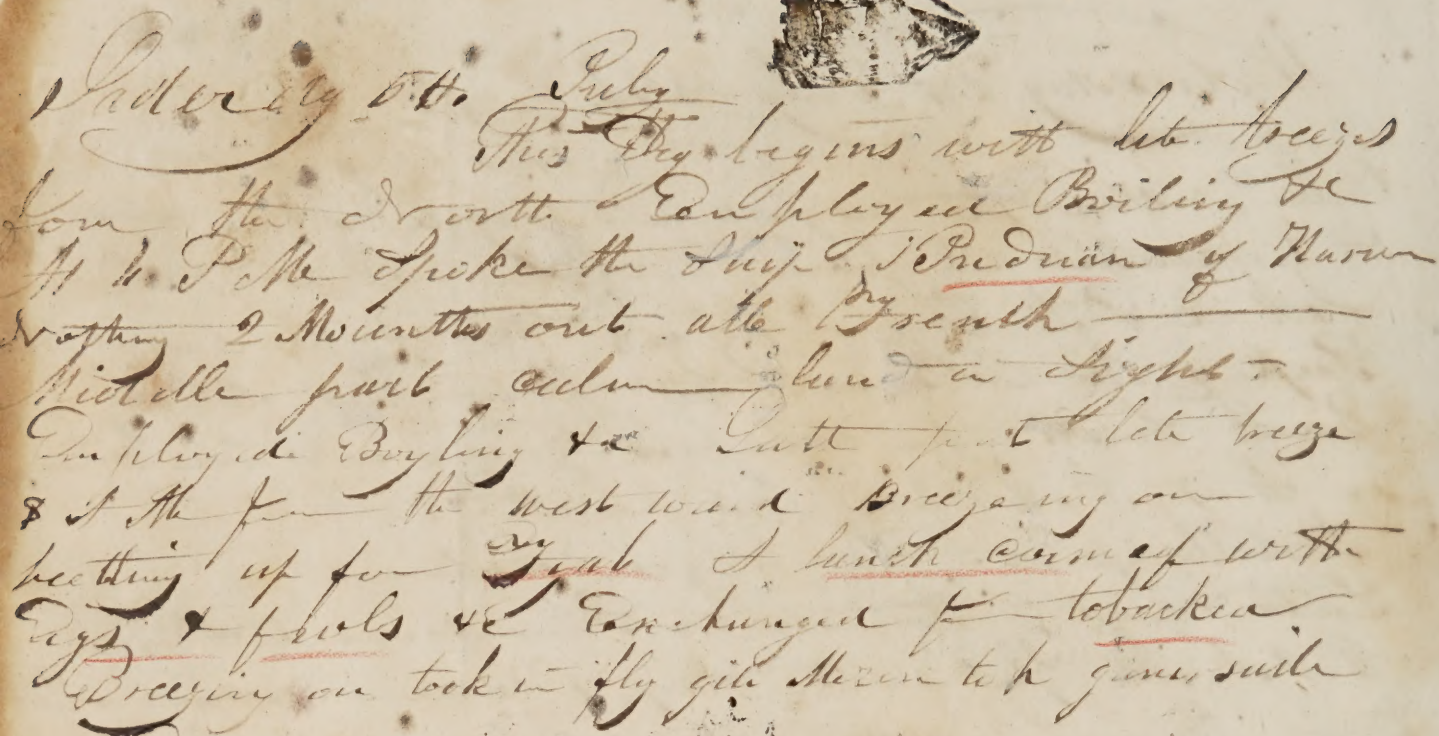 Saderday 5th. July
This Day begins with lite breezes
from the North Employed Boiling &c
At 4 P Me Spoke the Ship of
Nothing 2 Mounths out all French
Middle part calm land in Sight
Employed Boyling &c Latt part lite breeze
& from the west ward Breezeing on
beetting up for A lunch came of with
Egs & fowls &c Exchanged for tobackea
Breezing on took in fly gib Mizen